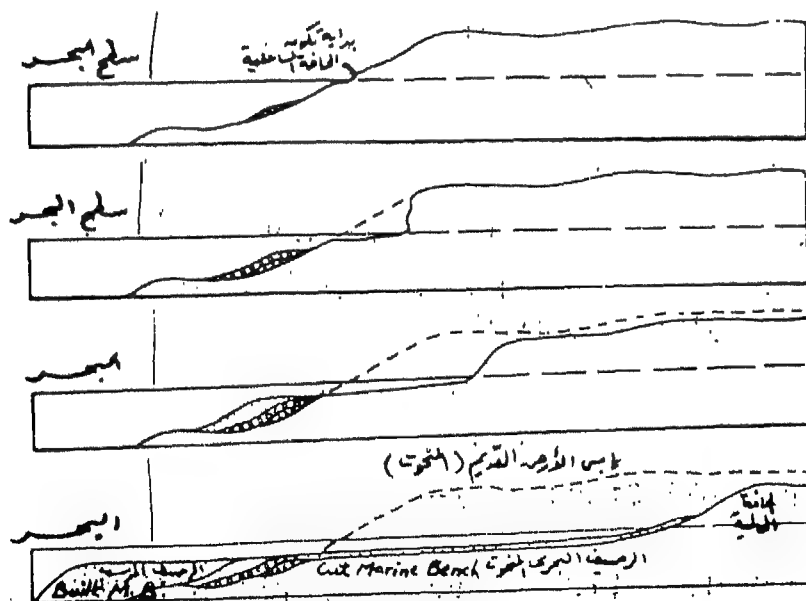 سطح البحر
بداية تكون
الحافة الساحلية
سطح البحر
البحر
يابس الأرض القديم (المنحوت)
البحر
الحافة
الرصيف
Built M. B.
Cut Marine Bench الرصيف البحرى المنحوت